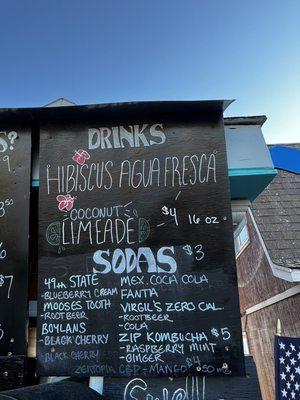 DRINKS
HIBISCUS AGUA FRESCA
COCONUT
LIMEADE
$4 16 oz
SODAS $3
49th STATE
-BLUEBERRY CREAM
MOOSES TOOTH
-ROOTBEER
BOYLANS
-BLACK CHERRY
BLACK CHERRY
MEX. COCA COLA
FANTA
VIRGIL'S ZERO CAL
-ROOTBEER
-COLA
ZIP KOMBUCHA $5
-RASPBERRY MINT
-GINGER $4
CBD-MANGO 50mg
S?
9
3.50
$7